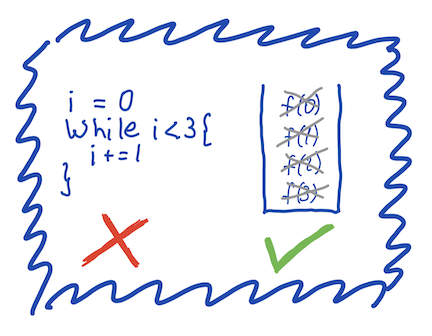 i = 0
while i<3{
i+=1
}
f(0)
f(1)
f(2)
f(3)